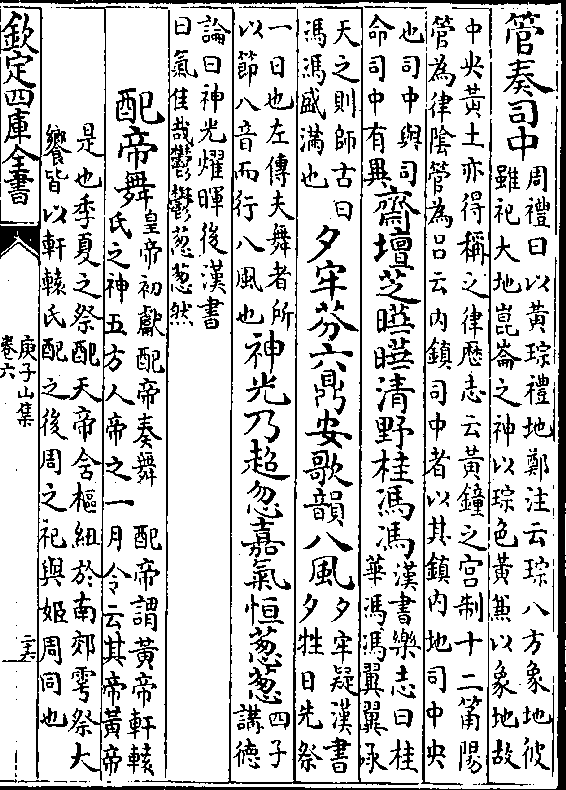 管奏司中
周禮曰以黃琮禮地鄭注云琮八方象地彼
雖祀大地崑崙之神以琮色黃兼以象地故
中央黃土亦得稱之律歴志云黃鐘之宫制十二筩陽
管為律陰管為吕云内鎮司中者以其鎮内地司中央
也司中與司
命司中有異
齋壇芝曗曗清野桂馮馮
漢書樂志曰桂
華馮馮翼翼承
天之則師古曰
馮馮盛滿也
夕牢芬六鼎安歌韻八風
夕牢疑漢書
夕牲日先祭
一日也左傳夫舞者所
以節八音而行八風也
神光乃超忽嘉氣恒葱葱
四子
講德
論曰神光燿暉後漢書
曰氣佳哉鬱鬱葱葱然
配帝舞
皇帝初獻配帝奏舞 配帝謂黃帝軒轅
氏之神五方人帝之一月令云其帝黃帝
是也季夏之祭配天帝含樞紐於南郊雩祭大
饗皆以軒轅氏配之後周之祀與姬周同也
欽定四庫全書
庾子山集
卷六